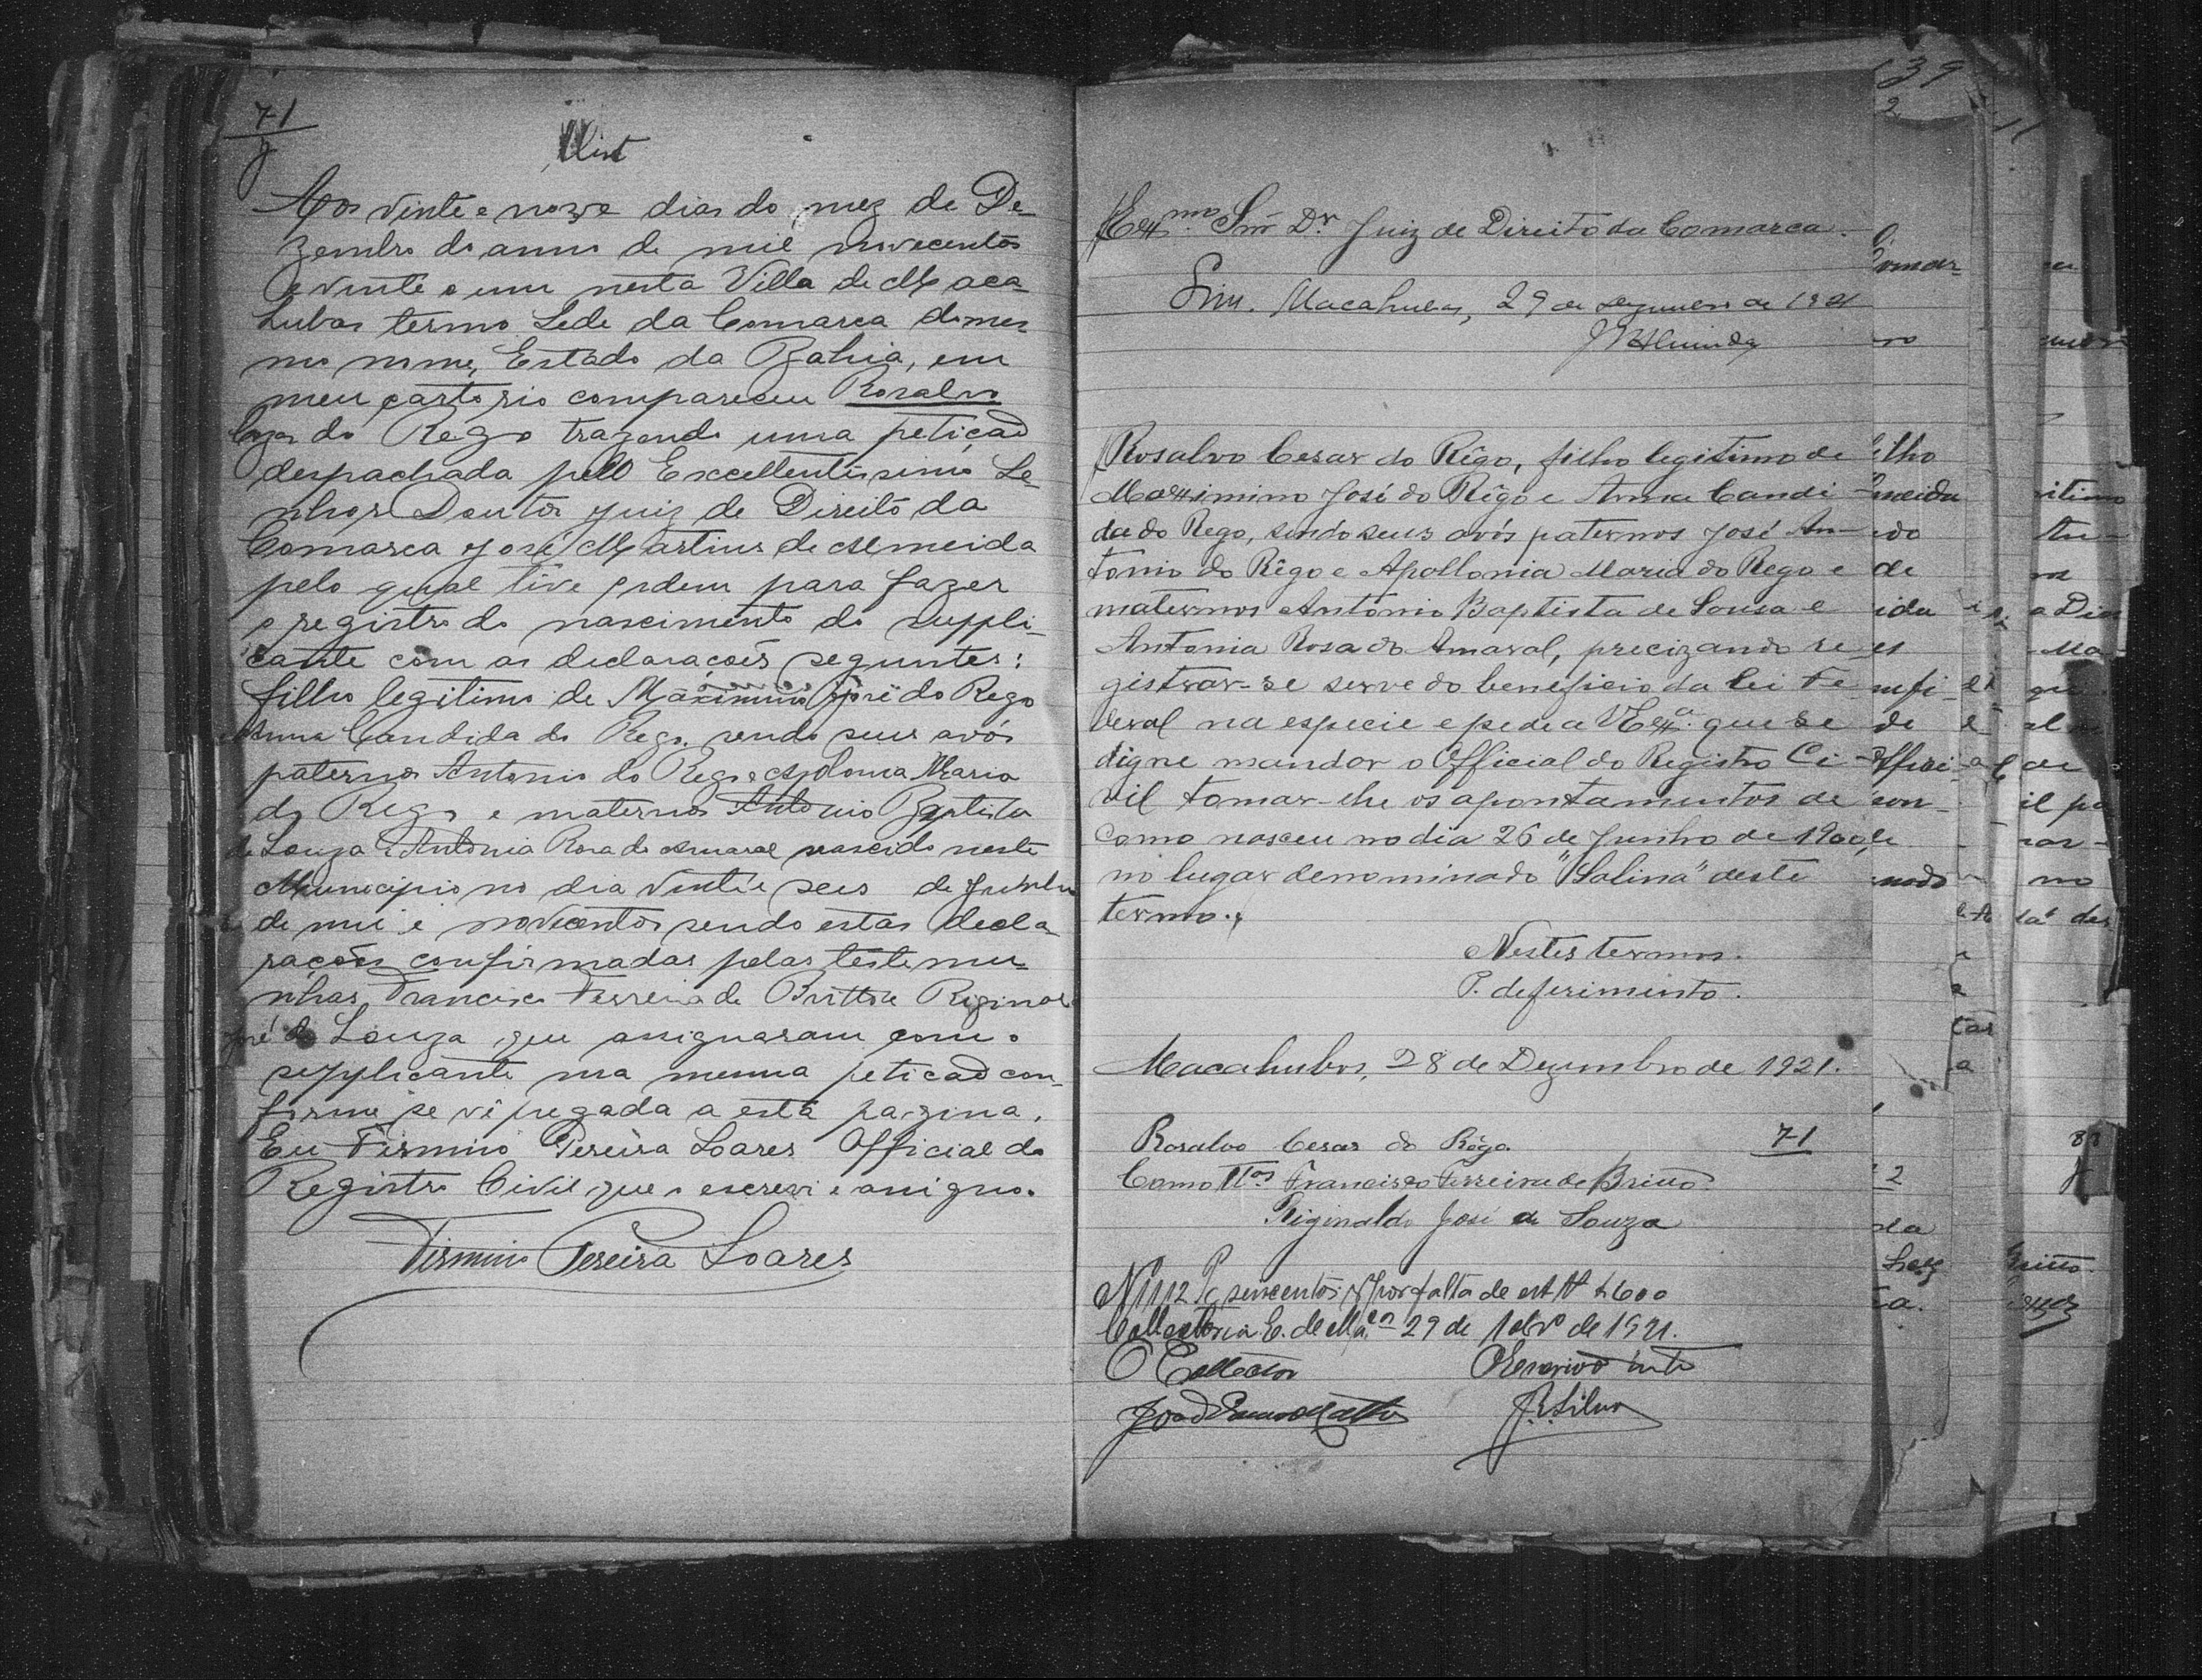 71
Visto
Aos vinte e nove dias do mez de De-
zembro do anno de mil novecentos
e vinte e um nesta Villa de Maca-
hubas termo Sede da Comarca do mes-
mo nome, Estado da Bahia, em
meu cartorio compareceu Rosalvo
Cezar do Rego trazendo uma petição
despachada pelo Excellentissimo Se-
nhor Doutor Juiz de Direito da
Comarca José Martins de Almeida
pelo qual tive ordem para fazer
o registro do nascimento do suppli-
cante com as declarações seguntes:
filho legitimo de Maximino José do Rego
e Anna Candida do Rego, sendo seus avós
paternos Antonio do Rego e Apolonia Maria
do Rego e maternos Antonio Baptista
de Souza e Antonia Rosa do Amaral nascido neste
Municipio no dia vinte e seis de Junho
de mil e novecentos sendo estas decla-
rações confirmadas pelas testemu-
nhas Francisco Ferreira de Britto e Riginaldo
José de Souza que assignaram com o
supplicante na mesma petição con-
forme se vê pregada a esta pagina.
Eu Firmino Pereira Soares Official do
Registro Civil que o escrevi e assigno.
Firmino Pereira Soares
Exmo. Snr. Dr. Juiz de Direito da Comarca.
Sim. Macahubas, 29 de dezembro de 1921
J M Almeida
Rosalvo Cesar do Rêgo, filho legitimo de
Maximino José do Rêgo e Anna Candi-
da do Rego, sendo seus avós paternos José An-
tonio do Rêgo e Apollonia Maria do Rego e
maternos Antonio Baptista de Sousa e
Antonia Rosa do Amaral, precizando re-
gistrar-se serve do beneficio da lei Fe-
deral na especie e pede a V Exª. que se
digne mandar o Official do Registro Ci-
vil tomar-lhe os apontamentos de
como nasceu no dia 26 de Junho de 1900,
no lugar denominado "Salina" deste
termo.
Nestes termos.
P. deferimento.
Macahubas, 28 de Dezembro de 1921.
Rosalvo Cesar do Rêgo.
71
Como Ttas Francisco Ferreira de Britto
Riginaldo José de Souza
N 1112 Pg seiscentos rs por falta de est. $600
Collectoria E. de Mas 29 de 10bro de 1921.
O Collector
O Escrivão intº
J. E. Silva
139